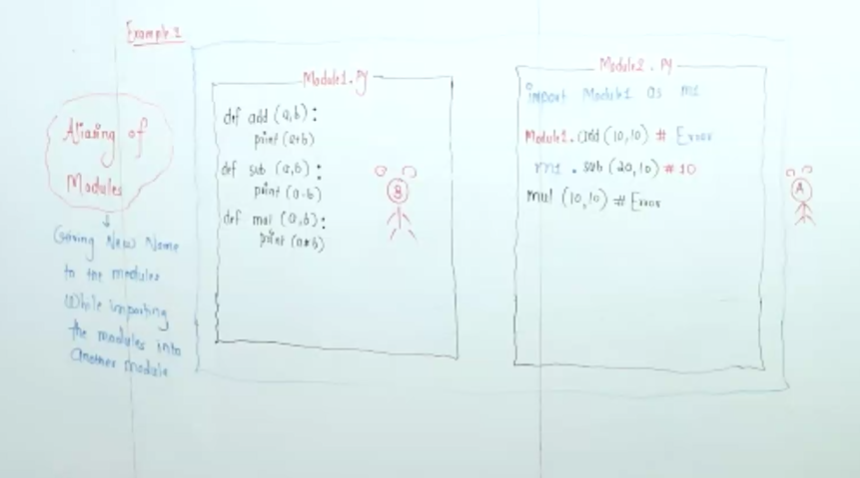 Example 2
Aliasing of
Modules
Giving New Name
to the modules
While importing
the modules into
another module
Module1.py
def add (a,b):
print (a+b)
def sub (a,b):
print (a-b)
def mul (a,b):
print (a*b)
B
Module2.py
import Module1 as m1
Module1.add(10,10) # Error
m1.sub(20,10) # 10
mul (10,10) # Error
A